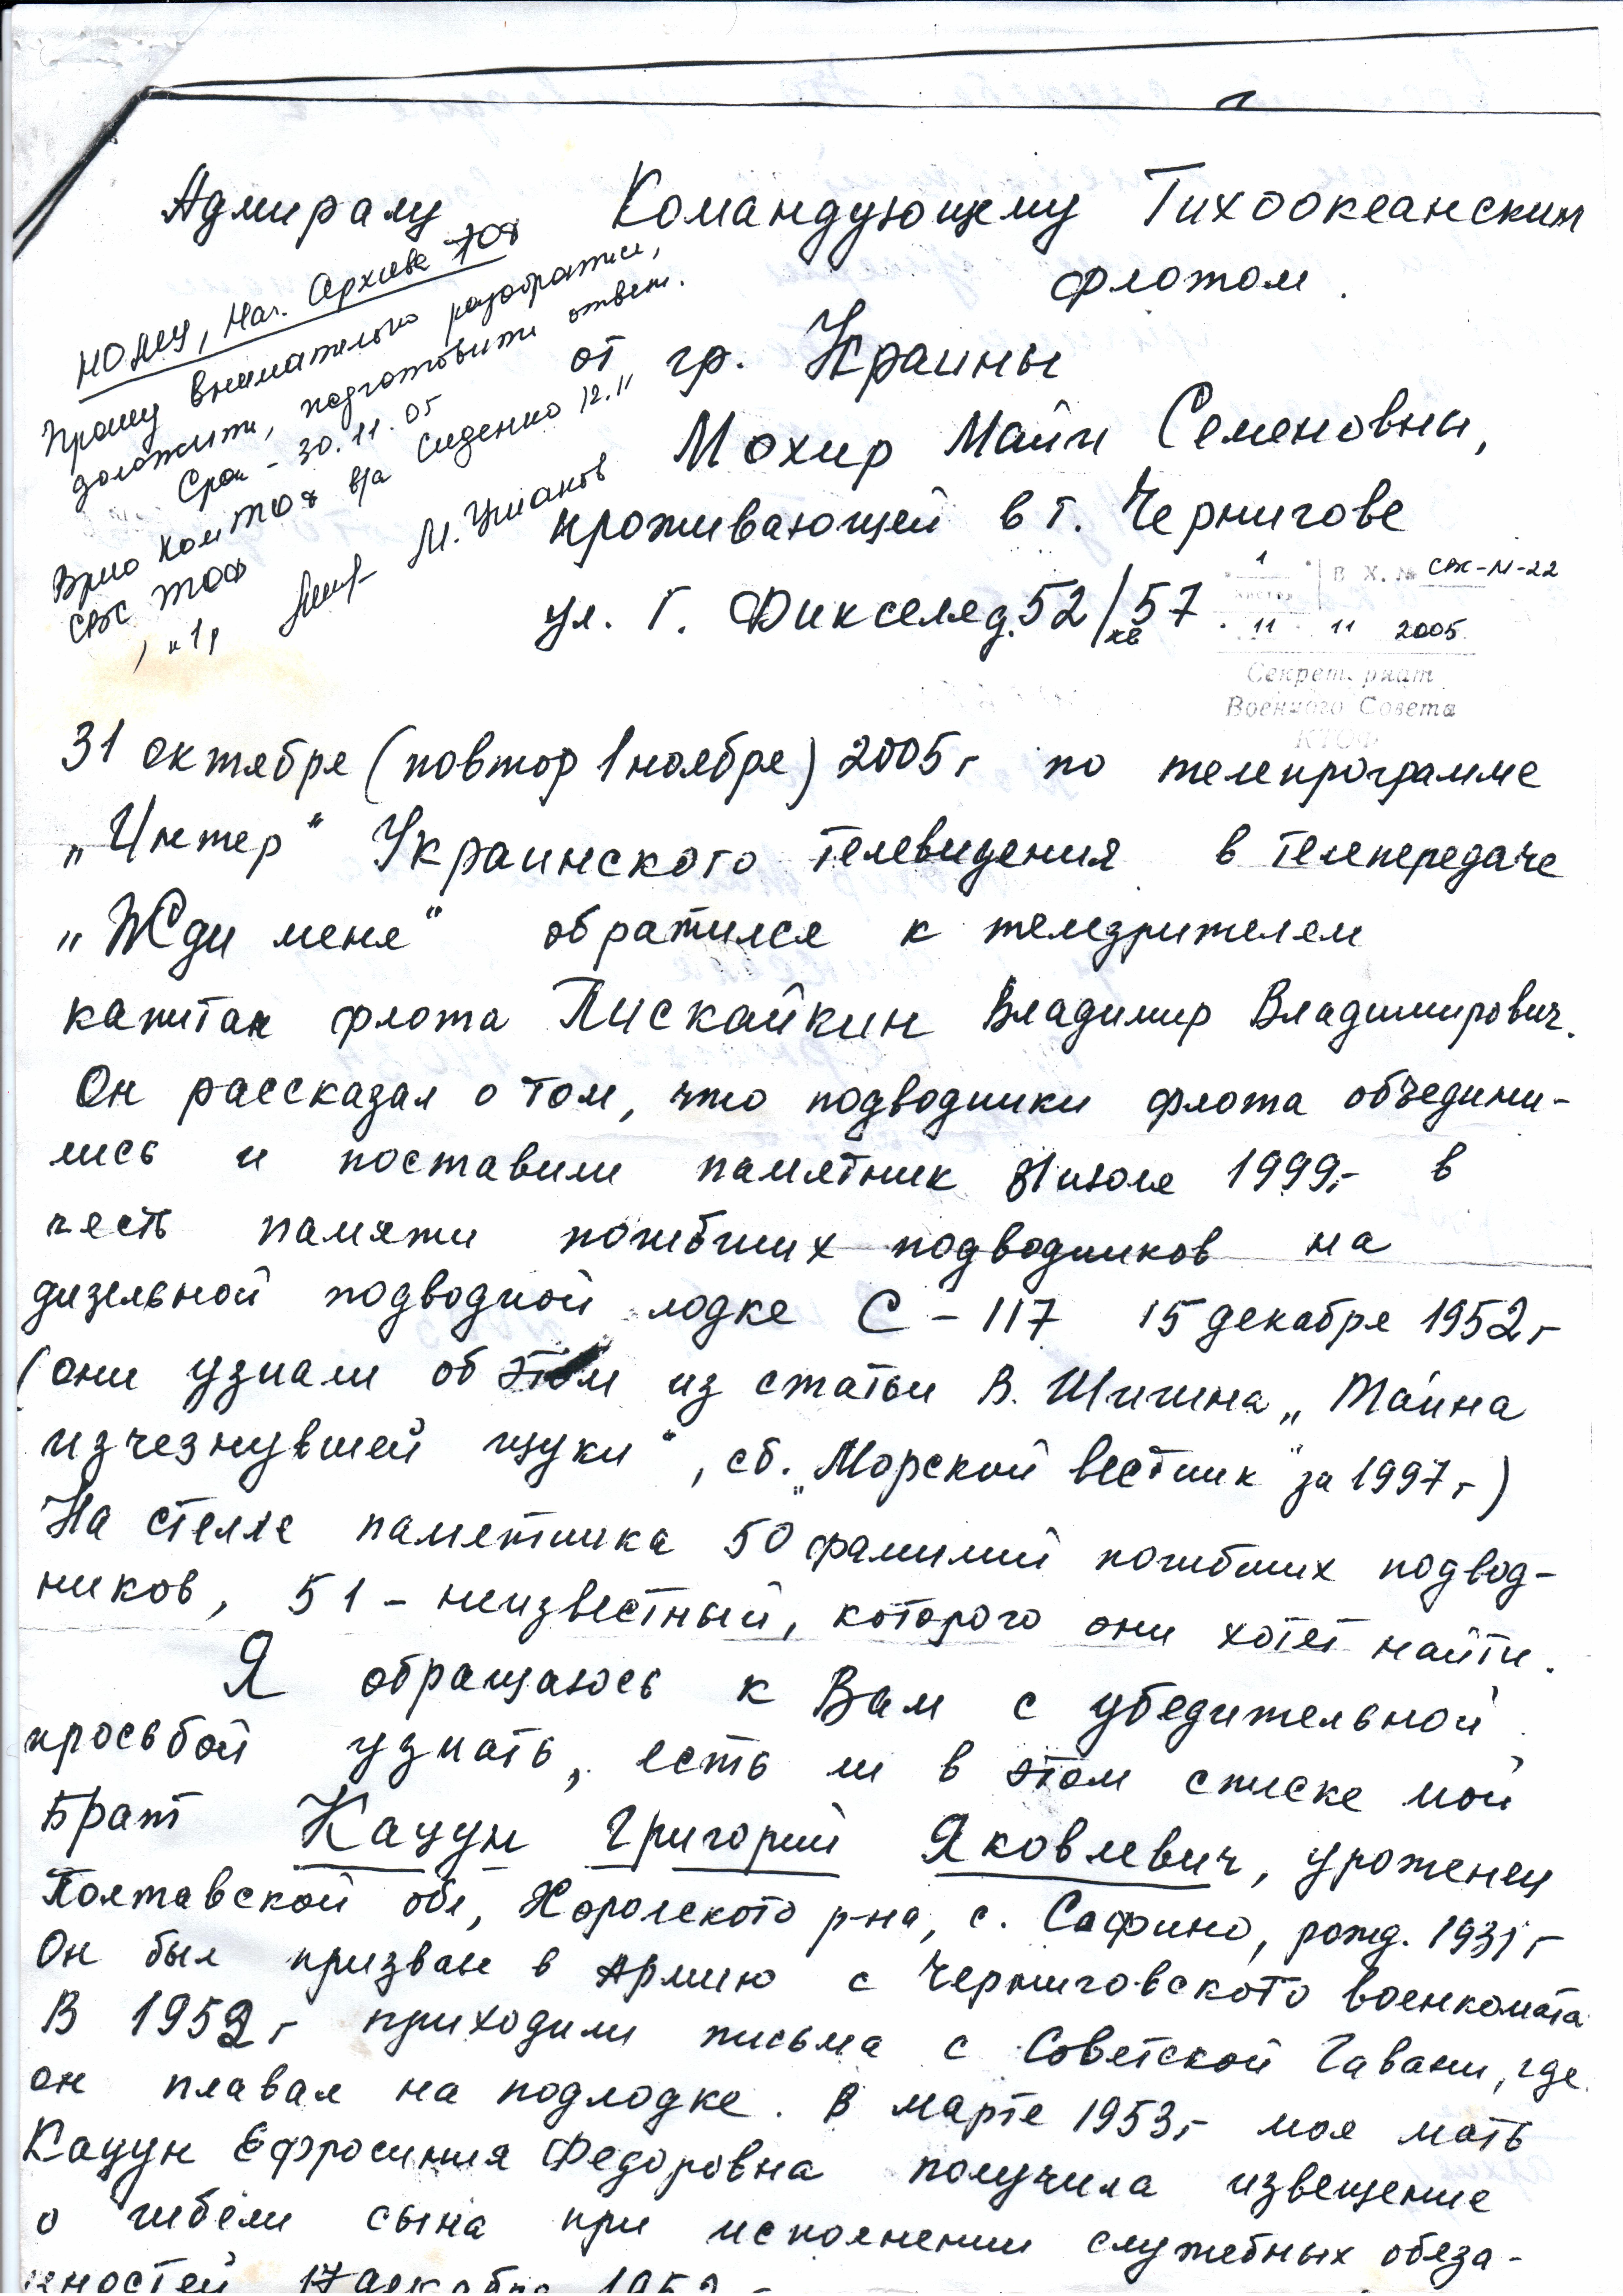 Адмиралу Командующему Тихоокеанским
флотом.
НОМУ, Нач. Архива ТОФ
Прошу внимательно разобраться,
доложить, подготовить ответ.
Срок - 30.11.05
Врио КомТОФ в/а Сиденко 12.11
СВС ТОФ
М. Ушаков
от гр. Украины
Мохир Майи Семеновны,
проживающей в г. Чернигове
ул. Г. Дикселя д. 52/кв 57
1
листов
В Х. № СВС-М-22
11 11 2005
Секретариат
Военного Совета
КТОФ
31 октября (повтор 1 ноября) 2005г по телепрограмме
„Интер“ Украинского телевидения в телепередаче
„Жди меня“ обратился к телезрителям
капитан флота Пискайкин Владимир Владимирович.
Он рассказал о том, что подводники флота объедини-
лись и поставили памятник 31 июля 1999г в
честь памяти погибших подводников на
дизельной подводной лодке С-117 15 декабря 1952г
(они узнали об этом из статьи В. Шигина „Тайна
изчезнувшей щуки“, сб. „Морской вестник“ за 1997г)
На стелле памятника 50 фамилий погибших подвод-
ников, 51 - неизвестный, которого они хотят найти.
Я обращаюсь к Вам с убедительной
просьбой узнать, есть ли в этом списке мой
брат Кацун Григорий Яковлевич, уроженец
Полтавской обл, Хорольского р-на, с. Сафино, рожд. 1931г
Он был призван в Армию с Черниговского военкомата
В 1952г приходили письма с Советской Гавани, где
он плавал на подлодке. В марте 1953г моя мать
Кацун Ефросиния Федоровна получила извещение
о гибели сына при исполнении служебных обяза-
нностей 17 декабря 1952